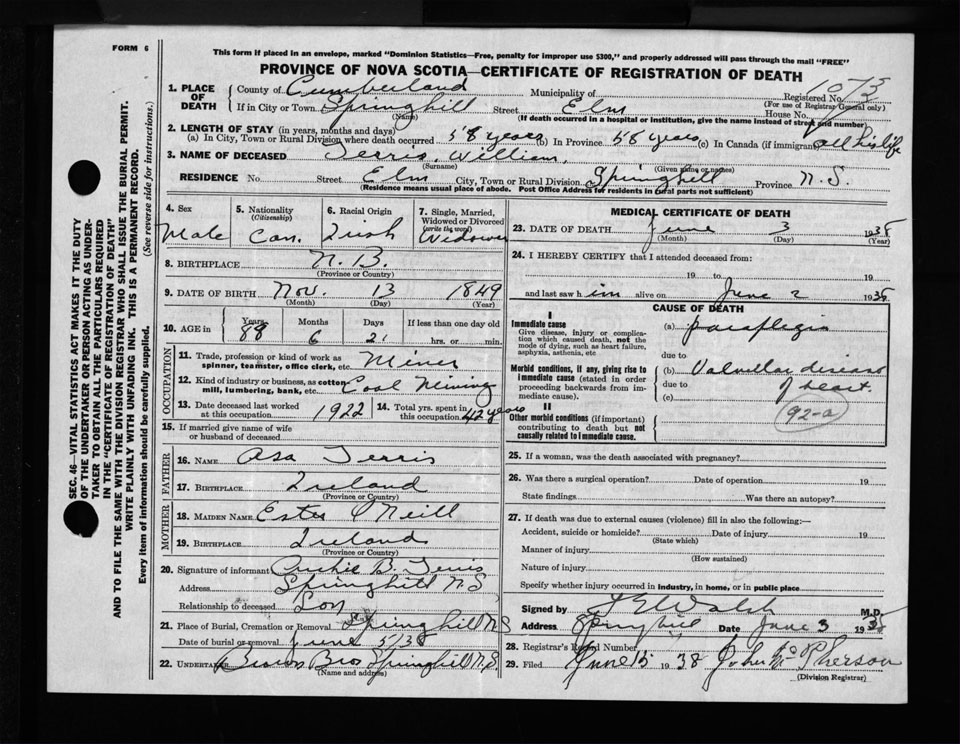 FORM 6
This form if placed in an envelope, marked "Dominion Statistics—Free, penalty for improper use $300," and properly addressed will pass through the mail "FREE"
PROVINCE OF NOVA SCOTIA—CERTIFICATE OF REGISTRATION OF DEATH
1. PLACE OF DEATH County of Cumberland Municipality of Registered No. 1073
(For use of Registrar General only)
If in City or Town Springhill Street Elm House No.
(Name) (If death occurred in a hospital or institution, give the name instead of street and number)
2. LENGTH OF STAY (in years, months and days)
(a) In City, Town or Rural Division where death occurred 58 years (b) In Province 58 years (c) In Canada (if immigrant) all his life
3. NAME OF DECEASED Terris, William,
(Surname) (Given name or names)
RESIDENCE No. Street Elm City, Town or Rural Division Springhill Province N.S.
(Residence means usual place of abode. Post Office Address for residents in rural parts not sufficient)
4. Sex Male
5. Nationality (Citizenship) Can.
6. Racial Origin Irish
7. Single, Married, Widowed or Divorced (write the word) Widower
8. BIRTHPLACE N.B.
(Province or Country)
9. DATE OF BIRTH Nov. 13 1849
(Month) (Day) (Year)
10. AGE in Years 88 Months 6 Days 21 If less than one day old hrs. or min.
OCCUPATION
11. Trade, profession or kind of work as spinner, teamster, office clerk, etc. Miner
12. Kind of industry or business, as cotton mill, lumbering, bank, etc. Coal Mining
13. Date deceased last worked at this occupation 1922
14. Total yrs. spent in this occupation 42 years
15. If married give name of wife or husband of deceased
FATHER
16. NAME Asa Terris
17. BIRTHPLACE Ireland
(Province or Country)
MOTHER
18. MAIDEN NAME Ester O'Neill
19. BIRTHPLACE Ireland
(Province or Country)
20. Signature of informant Archie B. Terris
Address Springhill N.S.
Relationship to deceased Son
21. Place of Burial, Cremation or Removal Springhill N.S
Date of burial or removal June 5/38
22. UNDERTAKER Brown Bros Springhill N.S.
(Name and address)
MEDICAL CERTIFICATE OF DEATH
23. DATE OF DEATH June 3 1938
(Month) (Day) (Year)
24. I HEREBY CERTIFY that I attended deceased from:
19 to 19
and last saw him alive on June 2 1938.
CAUSE OF DEATH
I
Immediate cause
Give disease, injury or complication which caused death, not the mode of dying, such as heart failure, asphyxia, asthenia, etc
(a) paraplegia
due to
Morbid conditions, if any, giving rise to immediate cause (stated in order proceeding backwards from immediate cause).
(b) Valvular disease
due to of heart
(c)
92-a
II
Other morbid conditions (if important) contributing to death but not causally related to immediate cause.
25. If a woman, was the death associated with pregnancy?
26. Was there a surgical operation? Date of operation 19
State findings Was there an autopsy?
27. If death was due to external causes (violence) fill in also the following:—
Accident, suicide or homicide? Date of injury 19
(State which)
Manner of injury
(How sustained)
Nature of injury
Specify whether injury occurred in industry, in home, or in public place
Signed by Walsh M.D.
Address Springhill Date June 3 1938
28. Registrar's Record Number
29. Filed June 15 1938 John McPherson
(Division Registrar)
SEC. 46—VITAL STATISTICS ACT MAKES IT THE DUTY
OF THE UNDERTAKER OR PERSON ACTING AS UNDERTAKER TO OBTAIN ALL THE PARTICULARS REQUIRED
IN THE "CERTIFICATE OF REGISTRATION OF DEATH"
AND TO FILE THE SAME WITH THE DIVISION REGISTRAR WHO SHALL ISSUE THE BURIAL PERMIT.
WRITE PLAINLY WITH UNFADING INK. THIS IS A PERMANENT RECORD.
Every item of information should be carefully supplied. (See reverse side for instructions.)